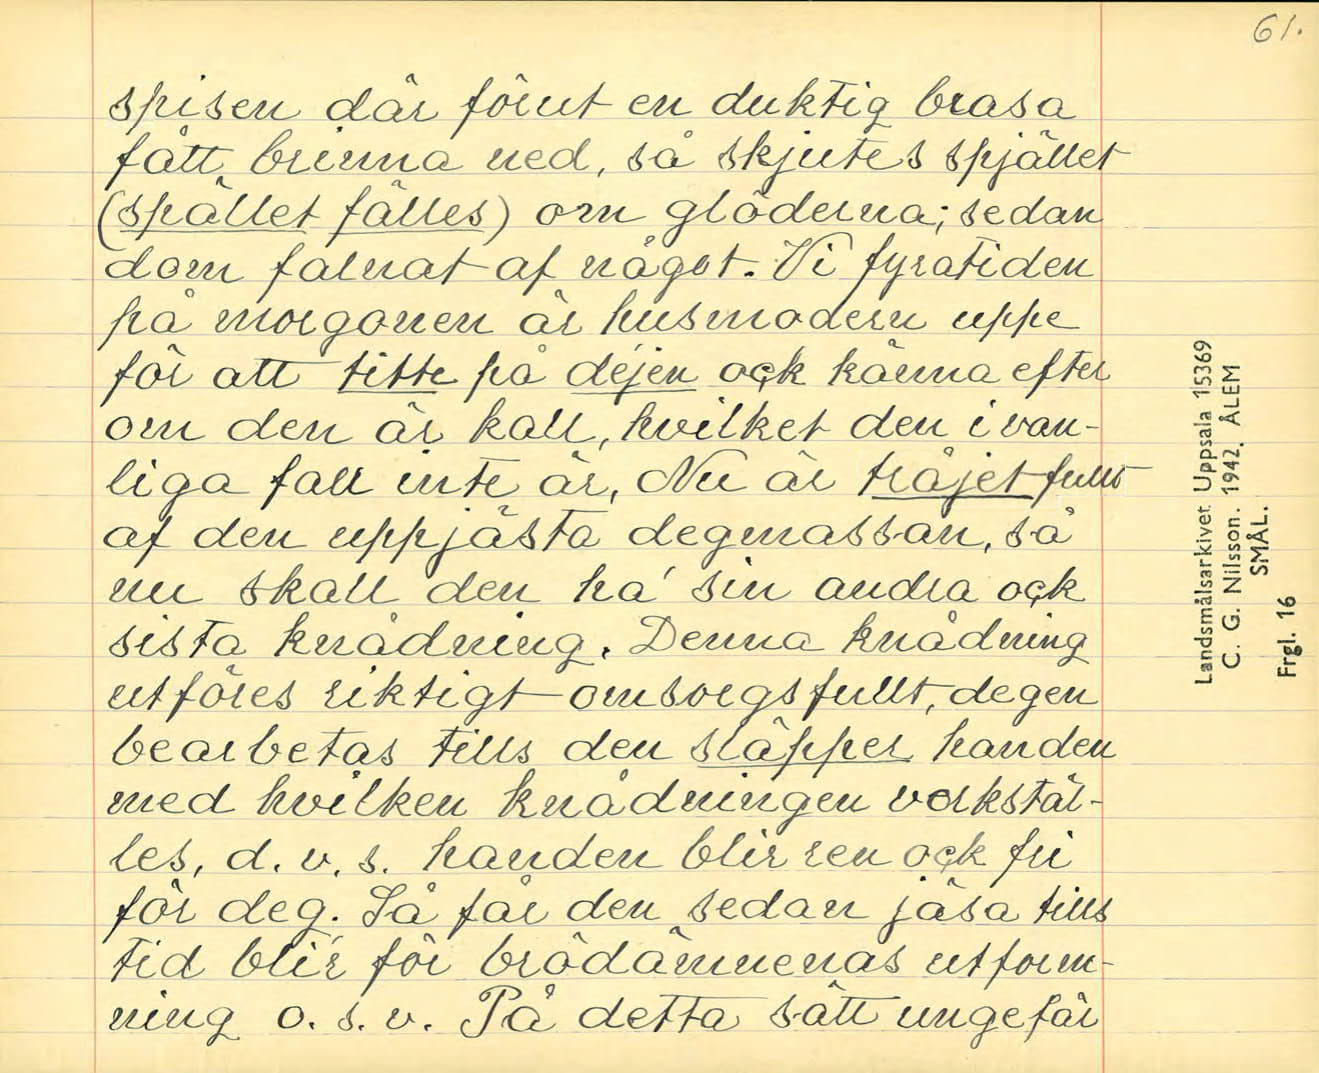 61.
spisen där förut en duktig brasa
fått brinna ned, så skjutes spjället
(spället fälles) om glöderna; sedan
dom falnat af något. Vi fyratiden
på morgonen är husmodern uppe
för att titte på dejen ock känna efter
om den är kall, hvilket den i van-
liga fall inte är, Nu är tråjet fullt
af den uppjästa degmassan, så
nu skall den ha' sin andra ock
sista knådning. Denna knådning
utföres riktigt omsorgsfullt, degen
bearbetas tills den släpper handen
med hvilken knådningen verkstäl-
les, d. v. s. handen blir ren ock fri
för deg. Så får den sedan jäsa tills
tid blir för brödämnenas utform-
ning o. s. v. På detta sätt ungefär
Landsmålsarkivet Uppsala 15369
C. G. Nilsson. 1942. ÅLEM
SMÅL.
Frgl. 16